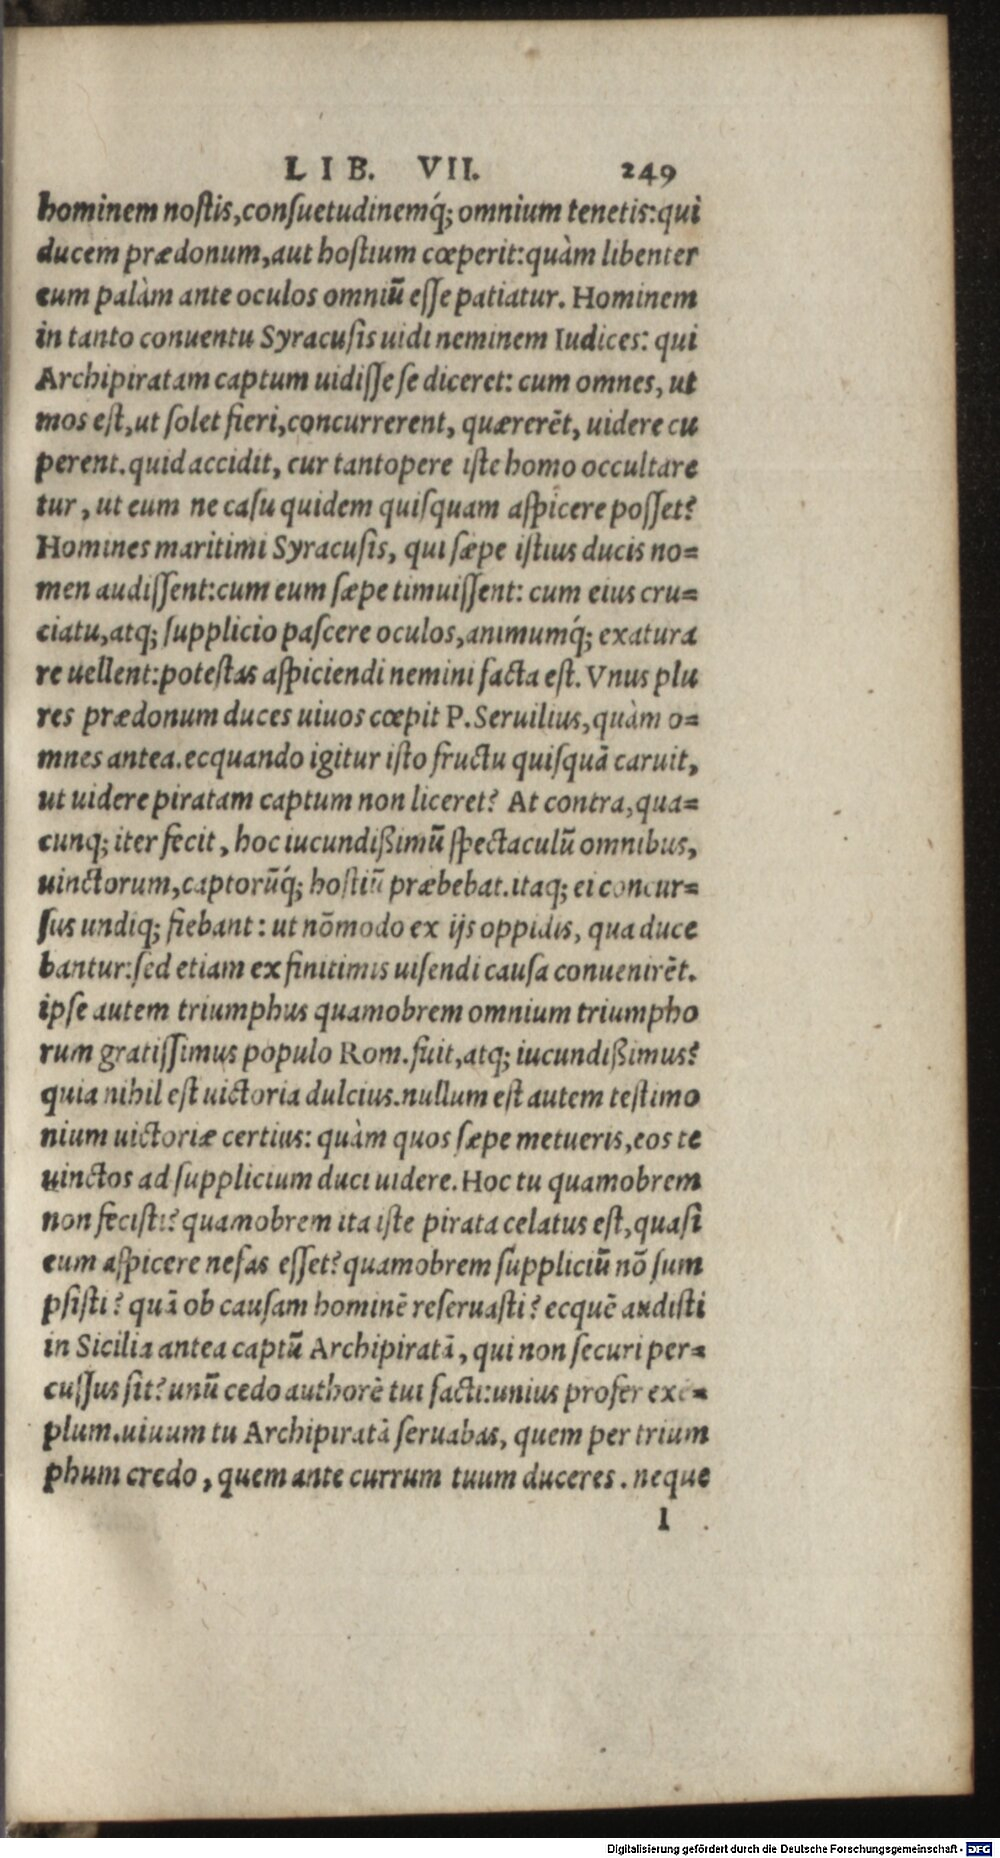 LIB. VII. 249
hominem nostis,consuetudinemq́; omnium tenetis:qui
ducem prædonum,aut hostium cœperit:quàm libenter
eum palàm ante oculos omniū esse patiatur. Hominem
in tanto conuentu Syracusis uidi neminem Iudices: qui
Archipiratam captum uidisse se diceret: cum omnes, ut
mos est,ut solet fieri,concurrerent, quærerēt, uidere cu
perent.quid accidit, cur tantopere iste homo occultare
tur, ut eum ne casu quidem quisquam aspicere posset?
Homines maritimi Syracusis, qui sæpe istius ducis no=
men audissent:cum eum sæpe timuissent: cum eius cru=
ciatu,atq; supplicio pascere oculos,animumq́; exatura
re uellent:potestas aspiciendi nemini facta est. Vnus plu
res prædonum duces uiuos cœpit P.Seruilius,quàm o=
mnes antea.ecquando igitur isto fructu quisquā caruit,
ut uidere piratam captum non liceret? At contra,qua=
cunq; iter fecit, hoc iucundißimū spectaculū omnibus,
uinctorum,captorūq́; hostiū præbebat.itaq; ei concur=
sus undiq; fiebant: ut nōmodo ex ijs oppidis, qua duce
bantur:sed etiam ex finitimis uisendi causa conuenirēt.
ipse autem triumphus quamobrem omnium triumpho
rum gratissimus populo Rom.fuit,atq; iucundißimus?
quia nihil est uictoria dulcius.nullum est autem testimo
nium uictoriæ certius: quàm quos sæpe metueris,eos te
uinctos ad supplicium duci uidere.Hoc tu quamobrem
non fecisti?quamobrem ita iste pirata celatus est,quasi
eum aspicere nefas esset?quamobrem suppliciū nō sum
psisti? quā ob causam hominē reseruasti? ecquē audisti
in Sicilia antea captū Archipiratā, qui non securi per=
cussus sit?unū cedo authorē tui facti:unius profer exe=
plum.uiuum tu Archipiratā seruabas, quem per trium
phum credo, quem ante currum tuum duceres. neque
l
Digitalisierung gefördert durch die Deutsche Forschungsgemeinschaft - DFG